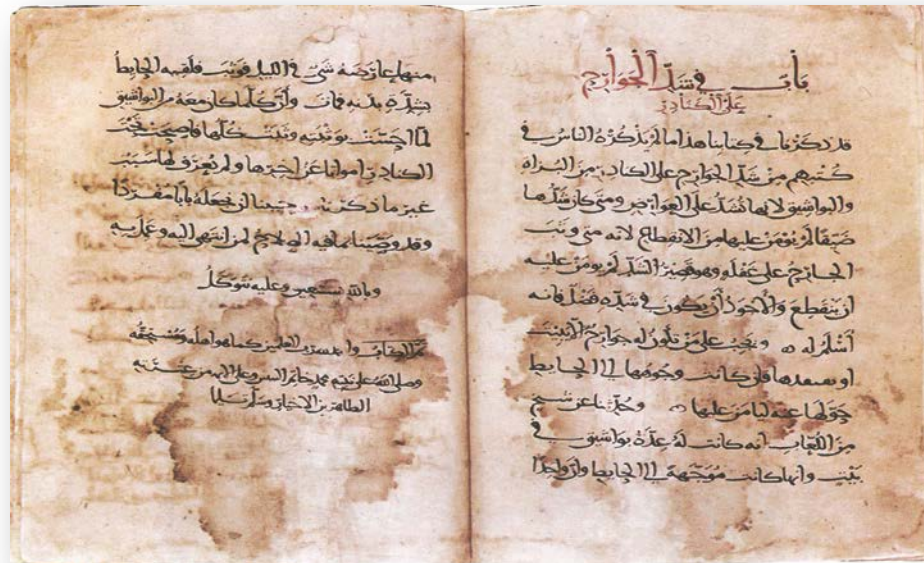 باب في شد الجوارح
على الكنادر
قد ذكرنا في كتابنا هذا ما لم يذكره الناس في
كتبهم من شد الجوارح على الكنادر من البزاة
والبواشيق لانها تشد على العوارض ومتى كان شدها
ضيقا لم يؤمن عليها من الانقطاع لانه متى وثب
الجارح على غفله وهو قصير الشد لم يومن عليه
ان ينقطع والاجود ان يكون في شده فضل فانه
اسلم له ويجب على من تكون له جوارح ان يبيت
او يصعدها فان كانت وجوهها الى الحايط
حولها عنه ليامن عليها وحدثنا عن شيخ
من اللعاب انه كانت له عدة بواشيق في
بيت وانها كانت موجهة الى الحايط وان واحدا
منها عارضه شي في الليل فوثب فلقيه الحايط
بشدة بدنه فمات وان كلما كان معه من البواشيق
لما احست بوثبته وثبت كلها فاصبحت تحت
الكنادر امواتا عن اخرها ولم يعرف لها سبب
غير ما ذكرته رجينا ان نجعله بابا مفردا
وقد وصينا بما فيه الصلاح لمن انتهى اليه وعمل به
وبالله نستعين وعليه نتوكل
تم الكتاب والحمد لله رب العالمين كما هو اهله ومستحقه
وصلى الله على نبيه محمد خاتم النبيين وعلى الايمه من عترته
الطاهرين الاخيار وسلم تسليما